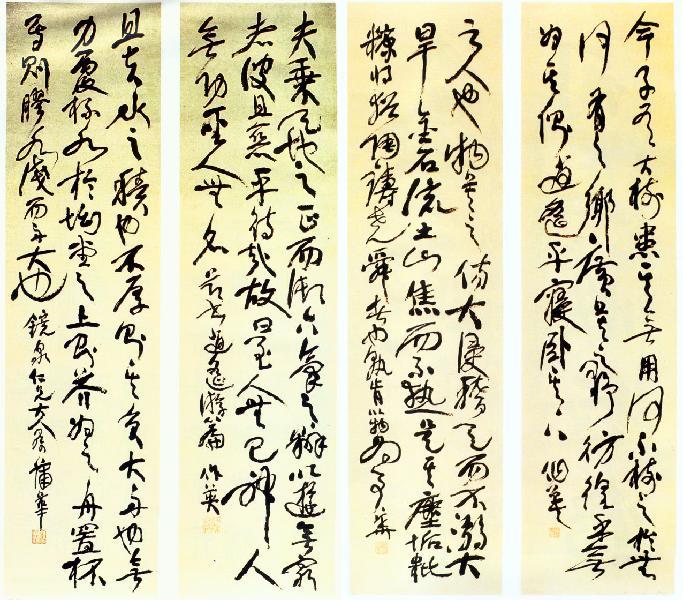 今子有大樹患其無用何不樹之於無
何有之鄉廣莫之野彷徨乎無
為其側逍遙乎寢臥其下 作英
之人也物莫之傷大浸稽天而不溺大
旱金石流土山焦而不熱是其塵垢粃
糠將猶陶鑄堯舜者也孰肯以物為事 華
夫乘天地之正而御六氣之辯以遊無窮
者彼且惡乎待哉故曰至人無己神人
無功聖人無名 逍遙游篇 作英
且夫水之積也不厚則其負大舟也無
力覆杯水於坳堂之上則芥為之舟置杯
焉則膠水淺而舟大也 鏡泉仁兄大人屬 蒲華